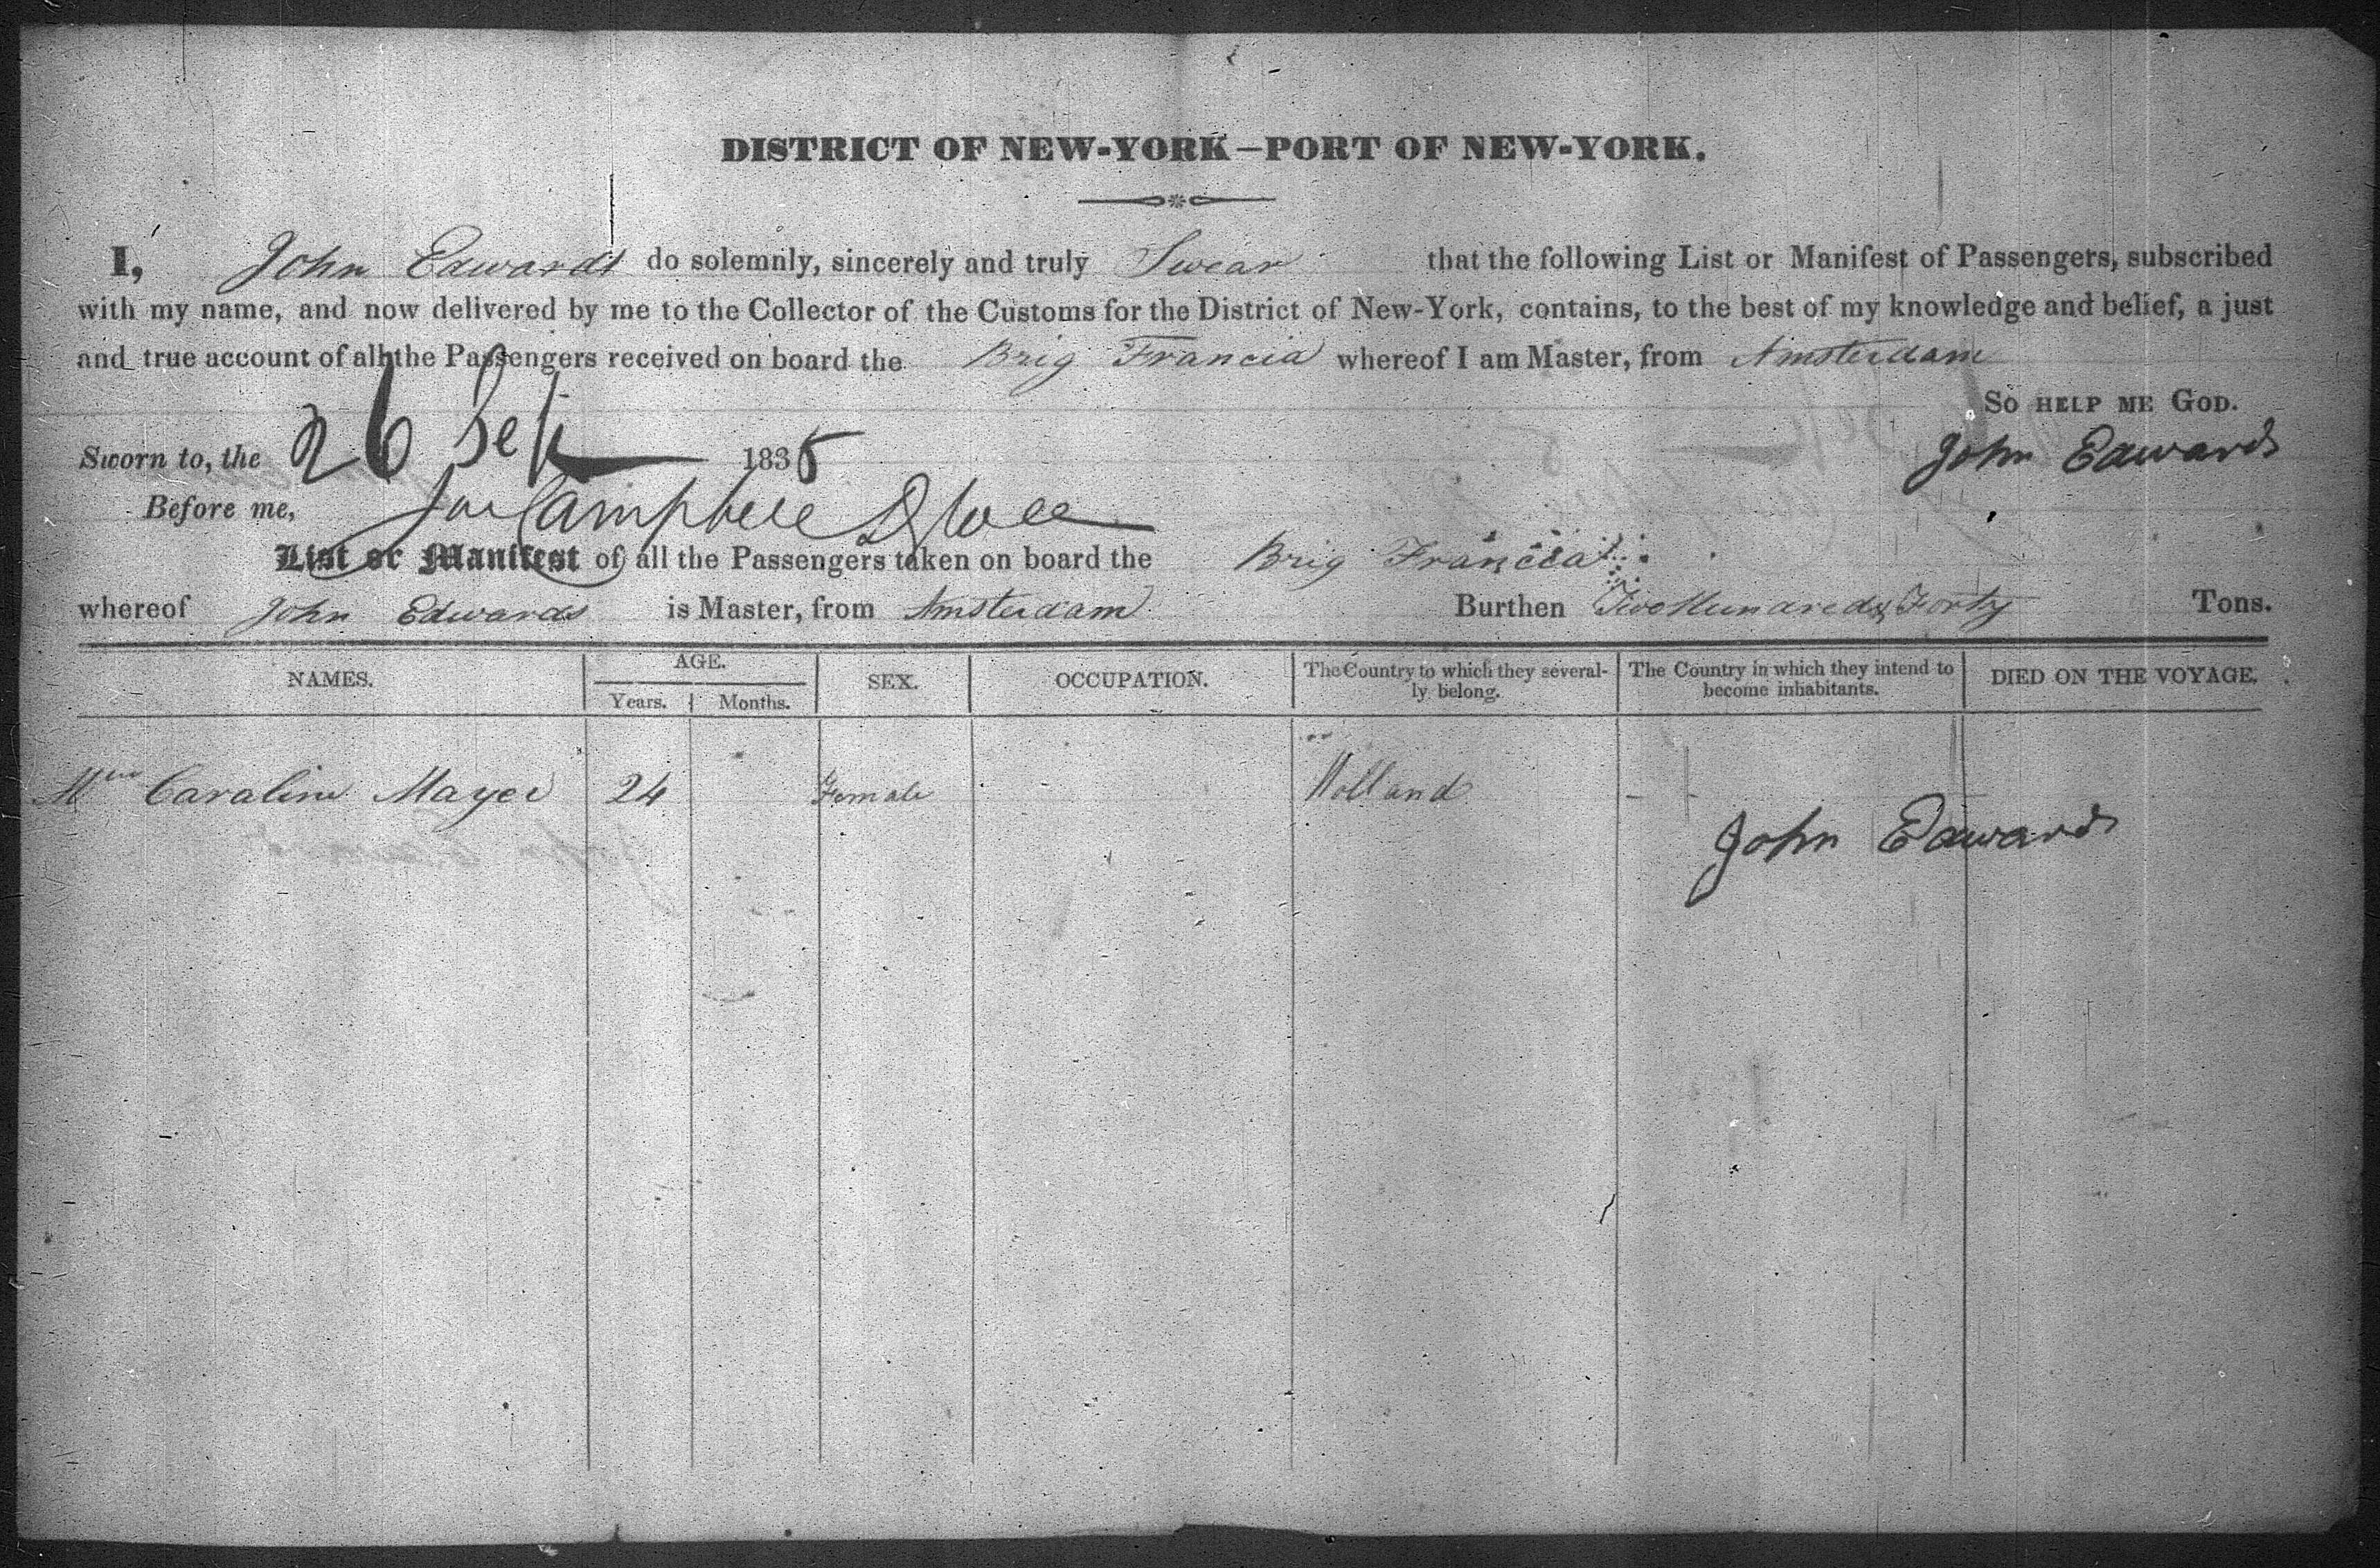 DISTRICT OF NEW-YORK—PORT OF NEW-YORK.
I, John Edwards do solemnly, sincerely and truly Swear that the following List or Manifest of Passengers, subscribed
with my name, and now delivered by me to the Collector of the Customs for the District of New-York, contains, to the best of my knowledge and belief, a just
and true account of all the Passengers received on board the Brig Francia whereof I am Master, from Amsterdam
SO HELP ME GOD.
Sworn to, the 26 Sep 1835 John Edwards
Before me, Campbell
List or Manifest of all the Passengers taken on board the Brig Francia
whereof John Edwards is Master, from Amsterdam Burthen Two Hundred & Forty Tons.
NAMES. AGE. SEX. OCCUPATION. The Country to which they several-ly belong. The Country in which they intend to become inhabitants. DIED ON THE VOYAGE.
Years. Months.
Caraline Mayer 24 Female Holland
John Edwards